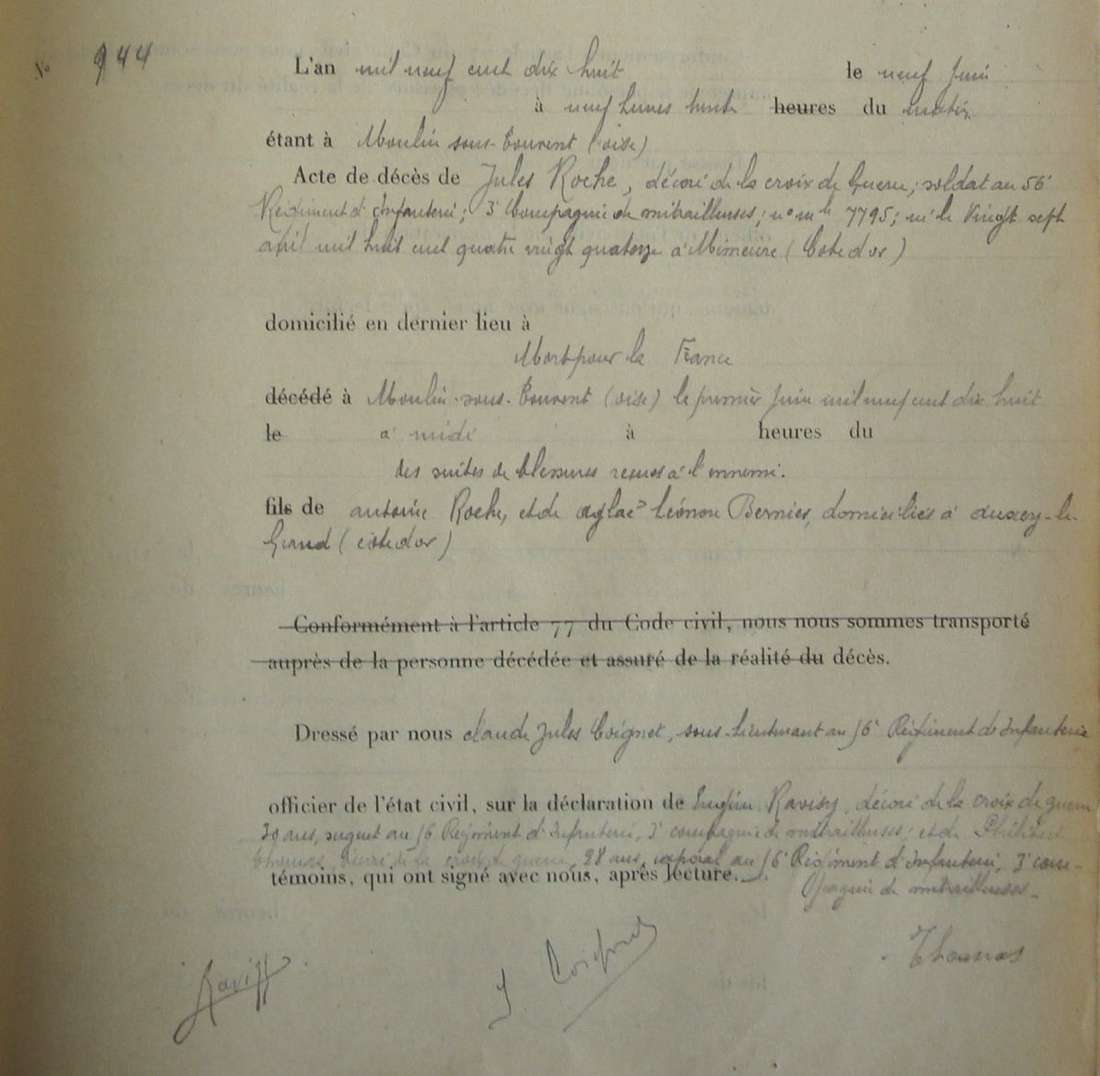 N° 944
L'an mil neuf cent dix huit le neuf Juin
à neuf heures trente heures du matin
étant à Moulin sous-Touvent (oise)
Acte de décès de Jules Roche, décoré de la croix de Guerre, soldat au 56e
Régiment d'Infanterie; 3e Compagnie de mitrailleuses; n° mle 7795; né le Vingt sept
avril mil huit cent quatre vingt quatorze à Mimeure (Cote d'or)
domicilié en dernier lieu à
Mort pour la France
décédé à Moulin-sous-Touvent (oise) le premier Juin mil neuf cent dix huit
le à midi à heures du
des suites de blessures reçues à l'ennemi.
fils de antoine Roche, et de aglaé Léonore Bernier, domiciliés à auxey-le
Grand (cote d'or)
Conformément à l'article 77 du Code civil, nous nous sommes transporté
auprès de la personne décédée et assuré de la réalité du décès.
Dressé par nous claude Jules Coignet, sous-lieutenant au 56e Régiment d'Infanterie
officier de l'état civil, sur la déclaration de Ravisy, décoré de la croix de guerre
ans, sergent au 56e Régiment d'Infanterie, 3e compagnie de mitrailleuses; et de Philibert
Thomas, décoré de la croix de guerre, 28 ans, caporal au 56e Régiment d'Infanterie, 3e com-
témoins, qui ont signé avec nous, après lecture.
pagnie de mitrailleuses-
J Coignet
Thomas